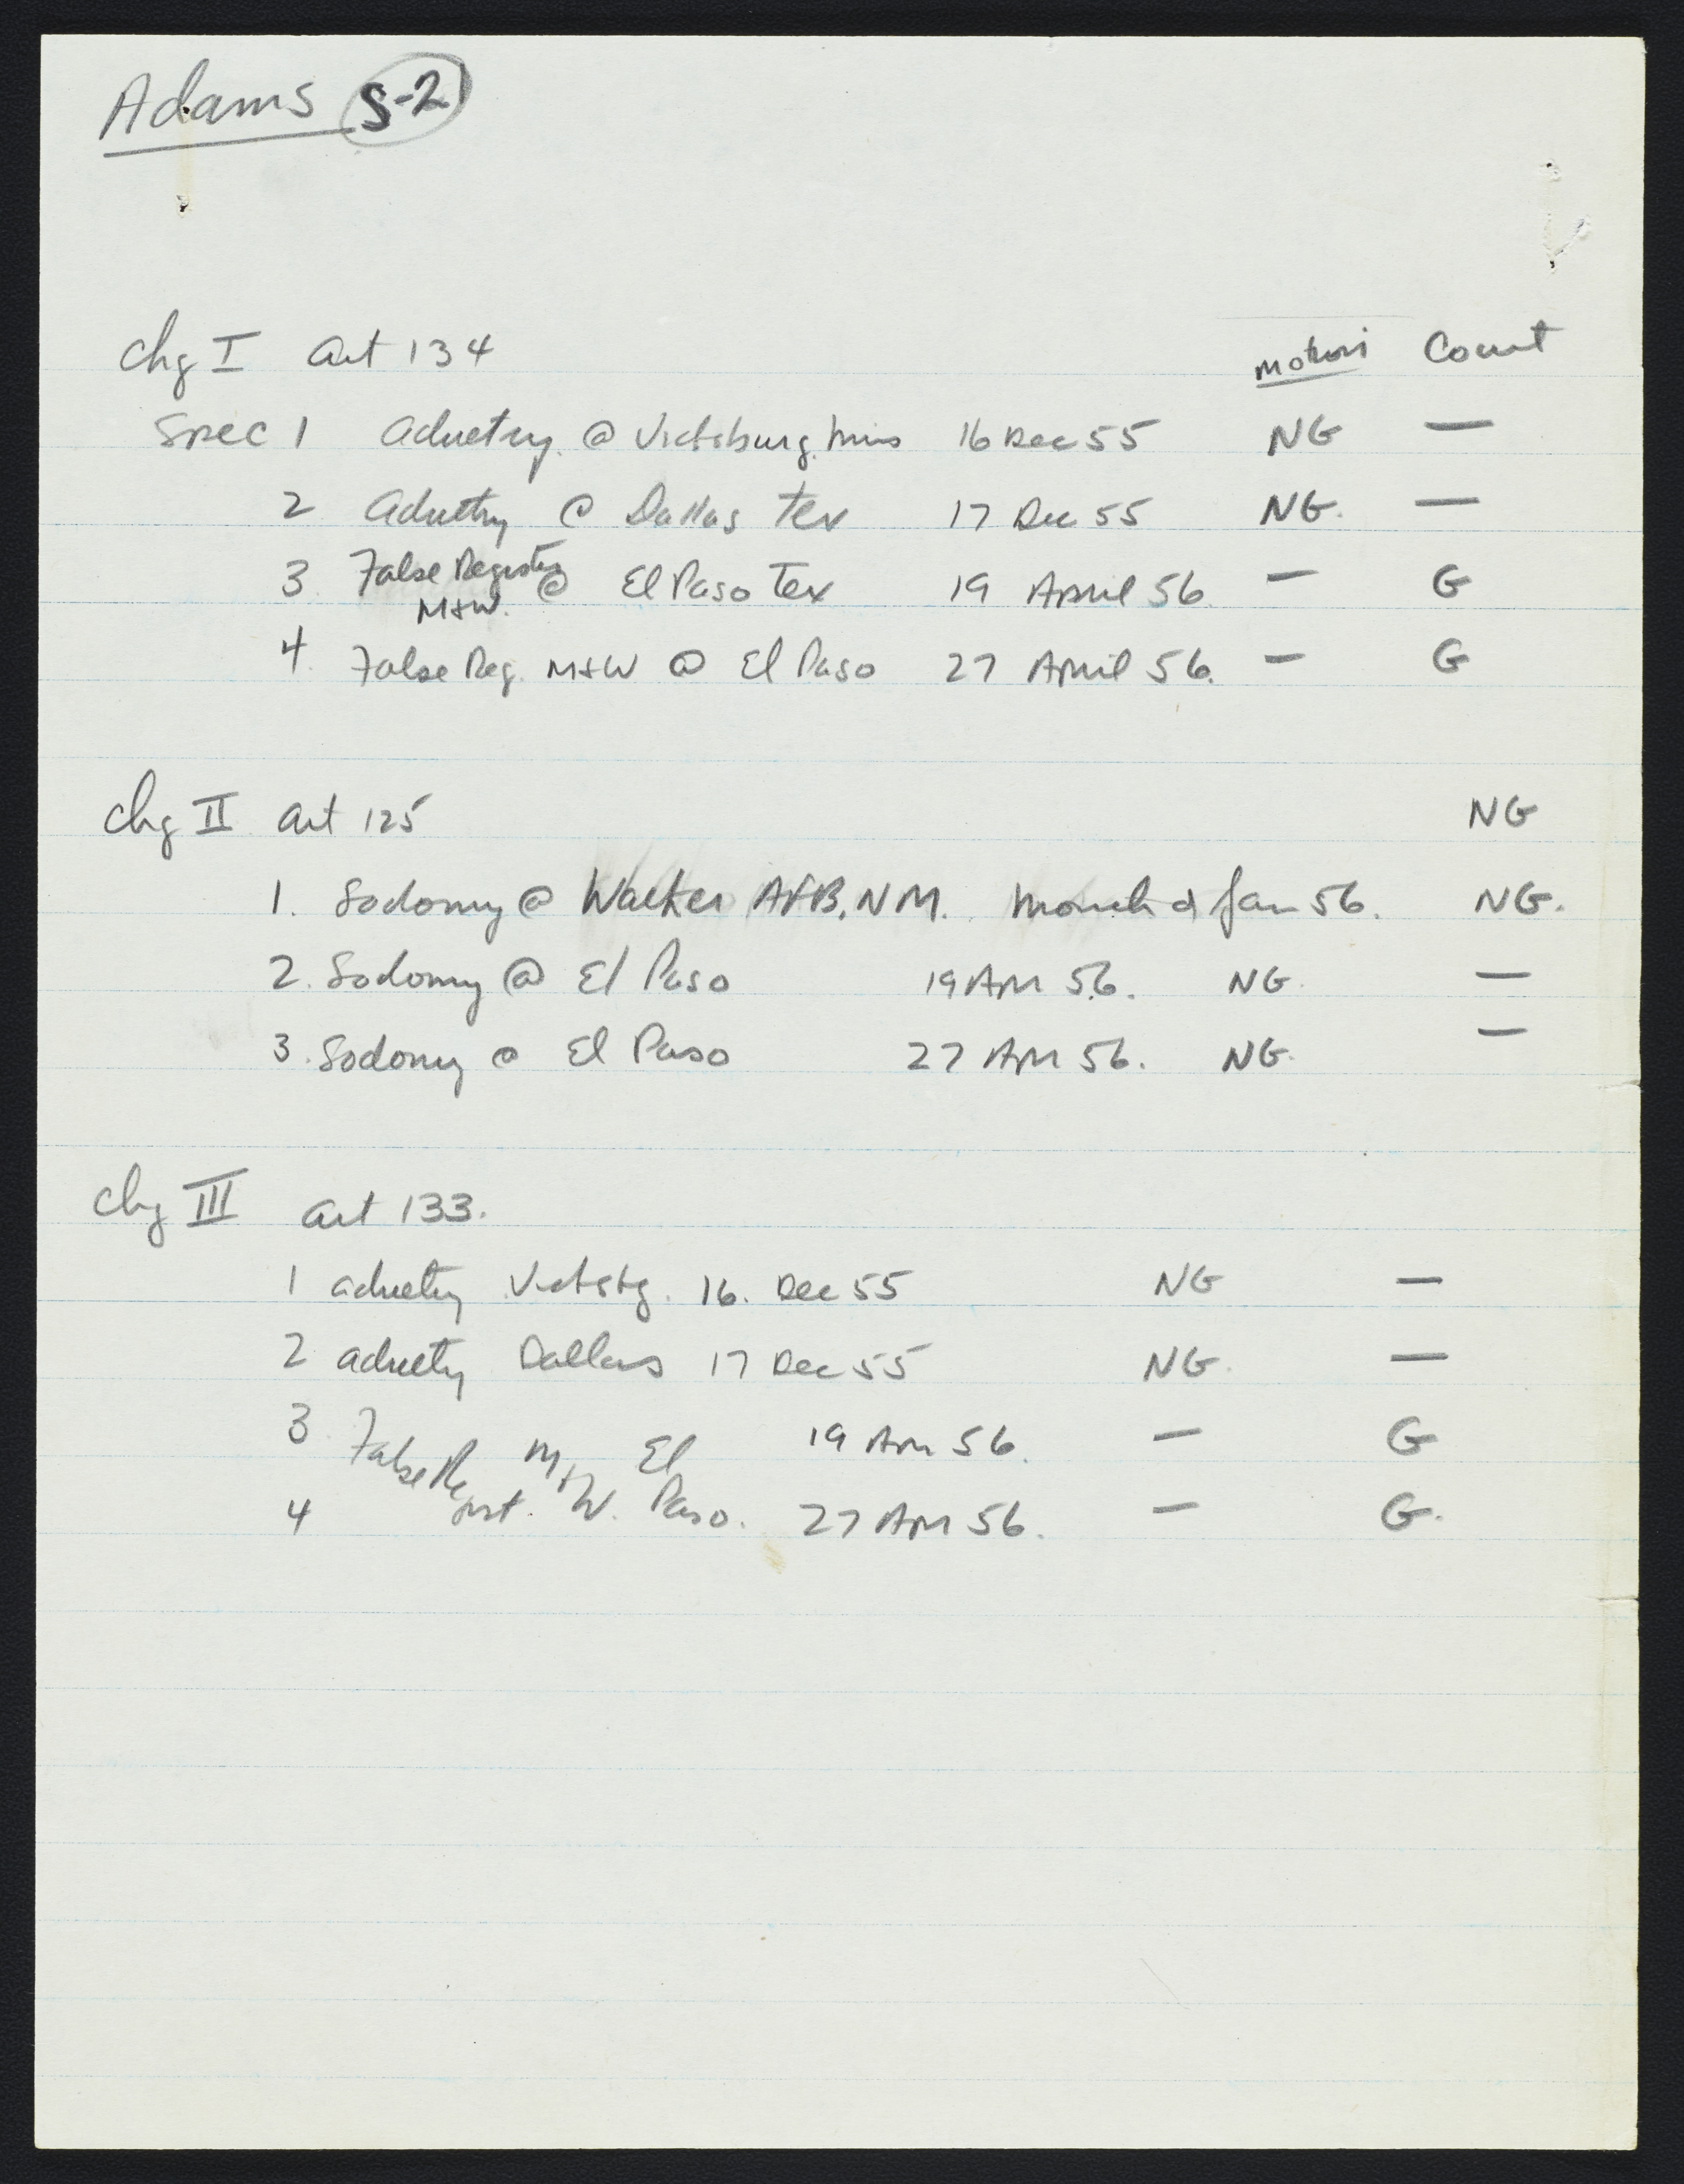 Adams S-2
Chg I Art 134 Motion Court
Spec 1 Adultery @ Vicksburg, Miss 16 Dec 55 NG —
2 Adultry @ Dallas Tex 17 Dec 55 NG. —
3 False Register @ El Paso Tex 19 April 56. — G
M+W.
4. False Reg. M+W @ El Paso 27 April 56. — G
Chg II Art 125 NG
1. Sodomy @ Walker AFB, NM. Month of Jan 56. NG.
2. Sodomy @ El Paso 19 Apr 56. NG. —
3. Sodomy @ El Paso 27 Apr 56. NG. —
Chg III Art 133.
1 adultery Vicksbg. 16. Dec 55 NG —
2 adultery Dallas 17 Dec 55 NG. —
3 False Regist. M+W. El Paso. 19 Apr 56. — G
4 27 Apr 56. — G.